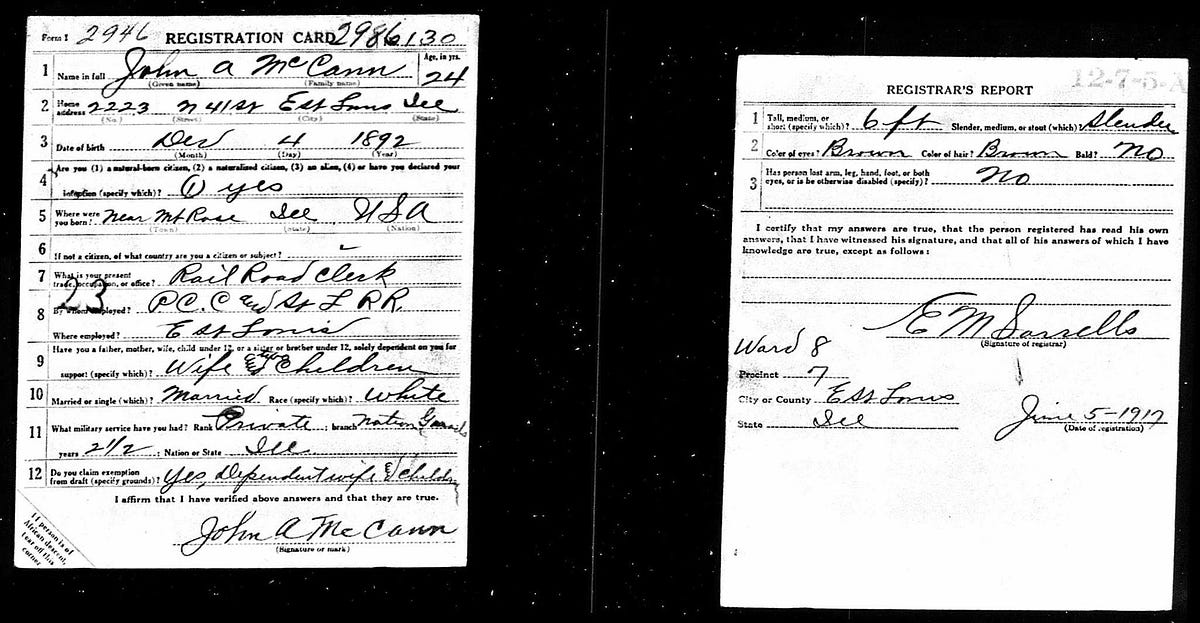 Form 1 2946 REGISTRATION CARD 2986 130
1 Name in full John A McCann Age, in yrs. 24
(Given name) (Family name)
2 Home address 2223 N 41 St E St Louis Ill
(No.) (Street) (City) (State)
3 Date of birth Dec 4 1892
(Month) (Day) (Year)
4 Are you (1) a natural-born citizen, (2) a naturalized citizen, (3) an alien, (4) or have you declared your
intention (specify which)? (1) yes
5 Where were you born? Near Mt Rose Ill USA
(Town) (State) (Nation)
6 If not a citizen, of what country are you a citizen or subject? -
7 What is your present trade, occupation, or office? Rail Road Clerk
23
8 By whom employed? P.C.C and St L RR.
Where employed? E St Louis
9 Have you a father, mother, wife, child under 12, or a sister or brother under 12, solely dependent on you for
support (specify which)? Wife & two Children
10 Married or single (which)? Married Race (specify which)? White
11 What military service have you had? Rank Private ; branch Nation Guards
years 2 1/2 ; Nation or State Ill
12 Do you claim exemption from draft (specify grounds)? Yes, Dependent wife & Childr
I affirm that I have verified above answers and that they are true.
John A McCann
(Signature or mark)
If person is of
African descent,
tear off this
corner
12-7-5-A
REGISTRAR'S REPORT
1 Tall, medium, or short (specify which)? 6 ft Slender, medium, or stout (which)? Slender
2 Color of eyes? Brown Color of hair? Brown Bald? No
3 Has person lost arm, leg, hand, foot, or both
eyes, or is he otherwise disabled (specify)? No
I certify that my answers are true, that the person registered has read his own
answers, that I have witnessed his signature, and that all of his answers of which I have
knowledge are true, except as follows:
E M Sorrells
(Signature of registrar)
Ward 8
Precinct 7
City or County E St Louis
State Ill
June 5-1917
(Date of registration)